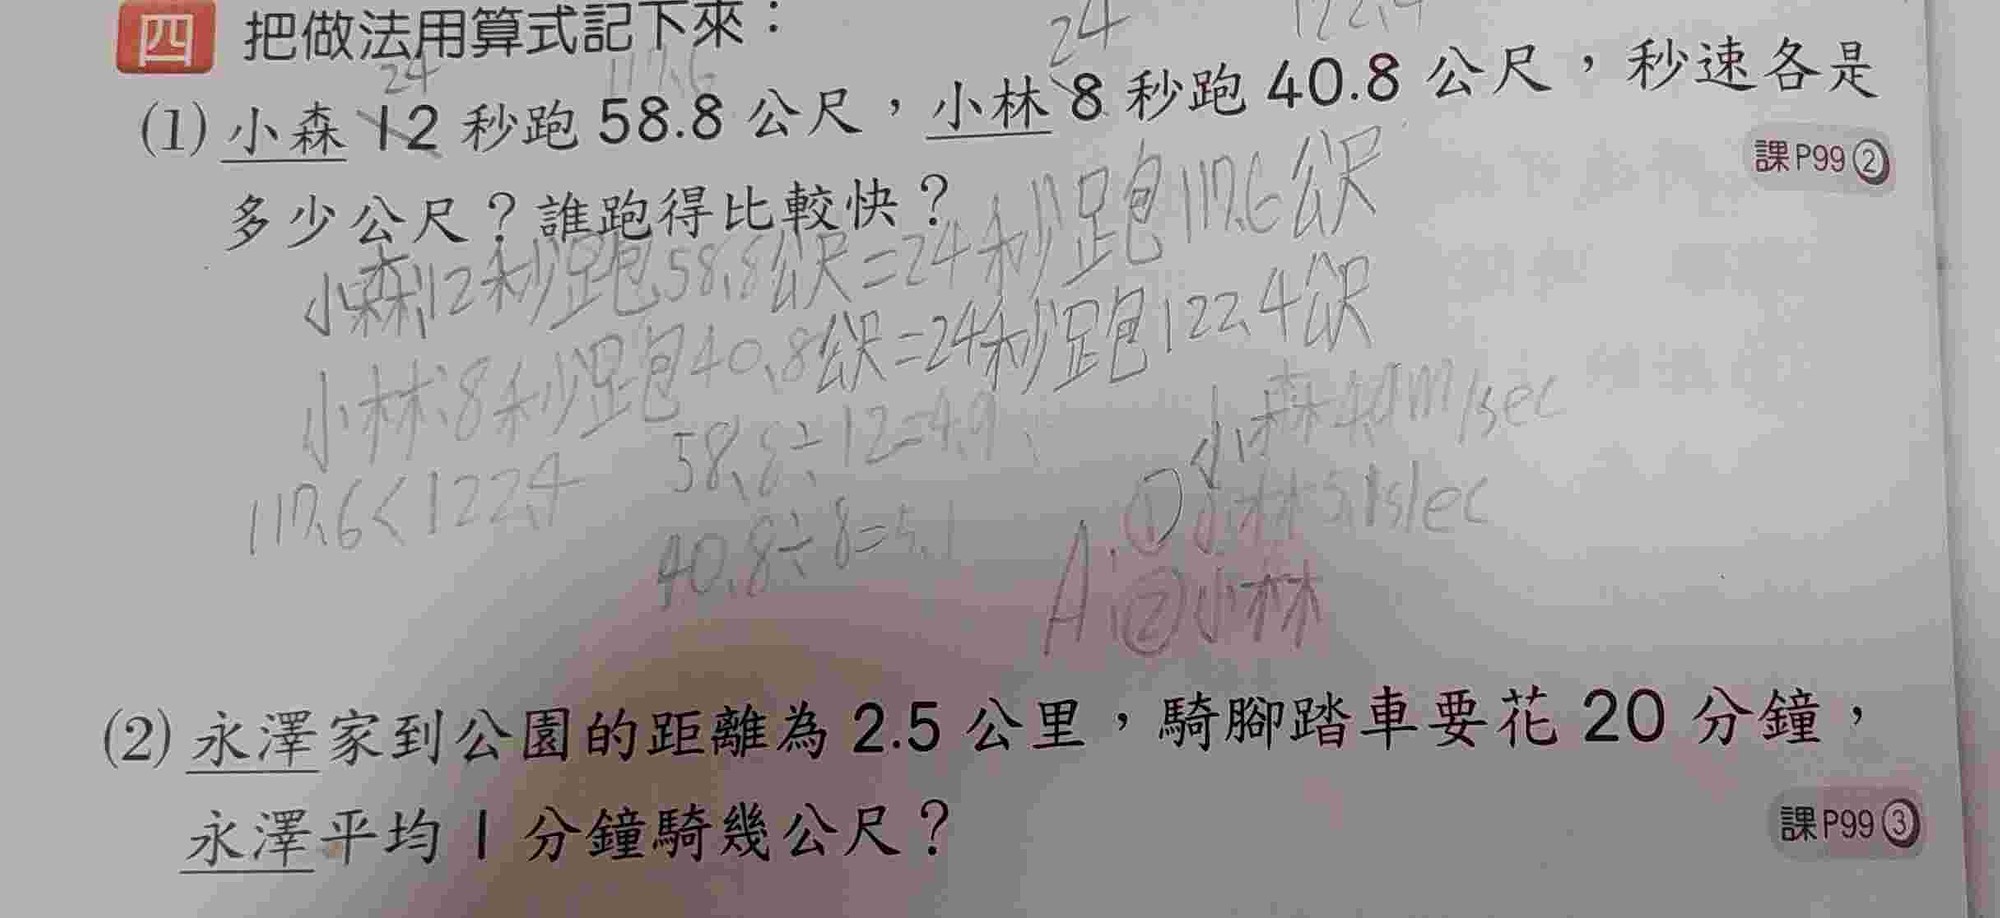 四 把做法用算式記下來：
24 117.6 24 122.4
(1) 小森 12 秒跑 58.8 公尺，小林 8 秒跑 40.8 公尺，秒速各是
課P99②
多少公尺？誰跑得比較快？
小森12秒跑58.8公尺=24秒跑117.6公尺
小林8秒跑40.8公尺=24秒跑122.4公尺
117.6<122.4
58.8÷12=4.9
40.8÷8=5.1
小森4.9m/sec
A:①小林5.1s/ec
②小林
(2) 永澤家到公園的距離為 2.5 公里，騎腳踏車要花 20 分鐘，
永澤平均 1 分鐘騎幾公尺？
課P99③